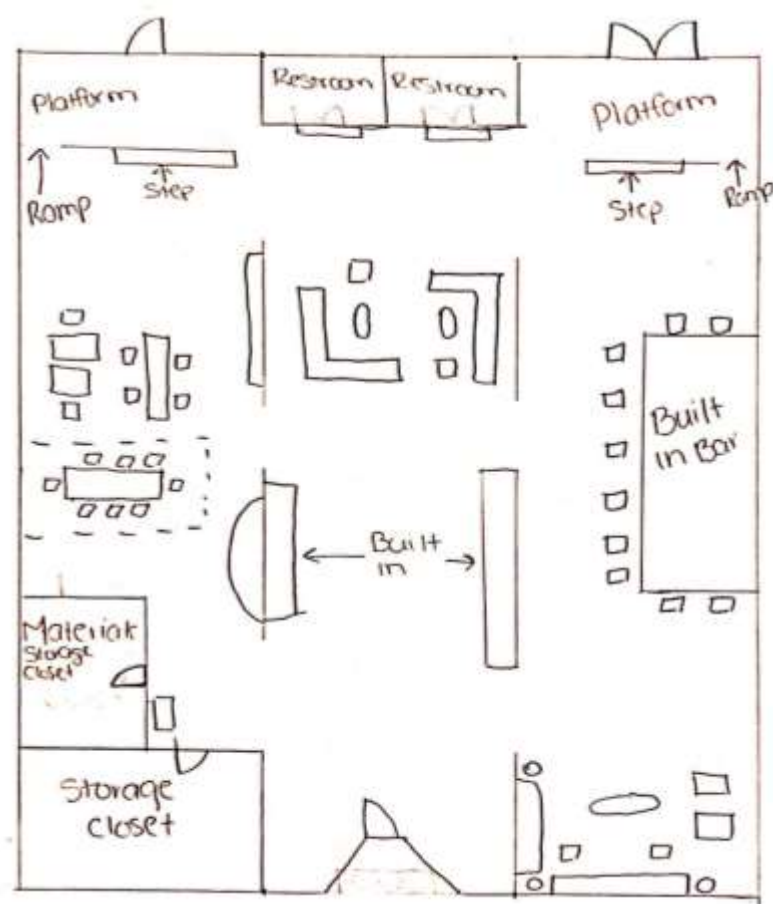 Platform
Restroom
Restroom
Platform
Ramp
Step
Step
Ramp
Built
in Bar
Built
in
Material
Storage
Closet
Storage
Closet